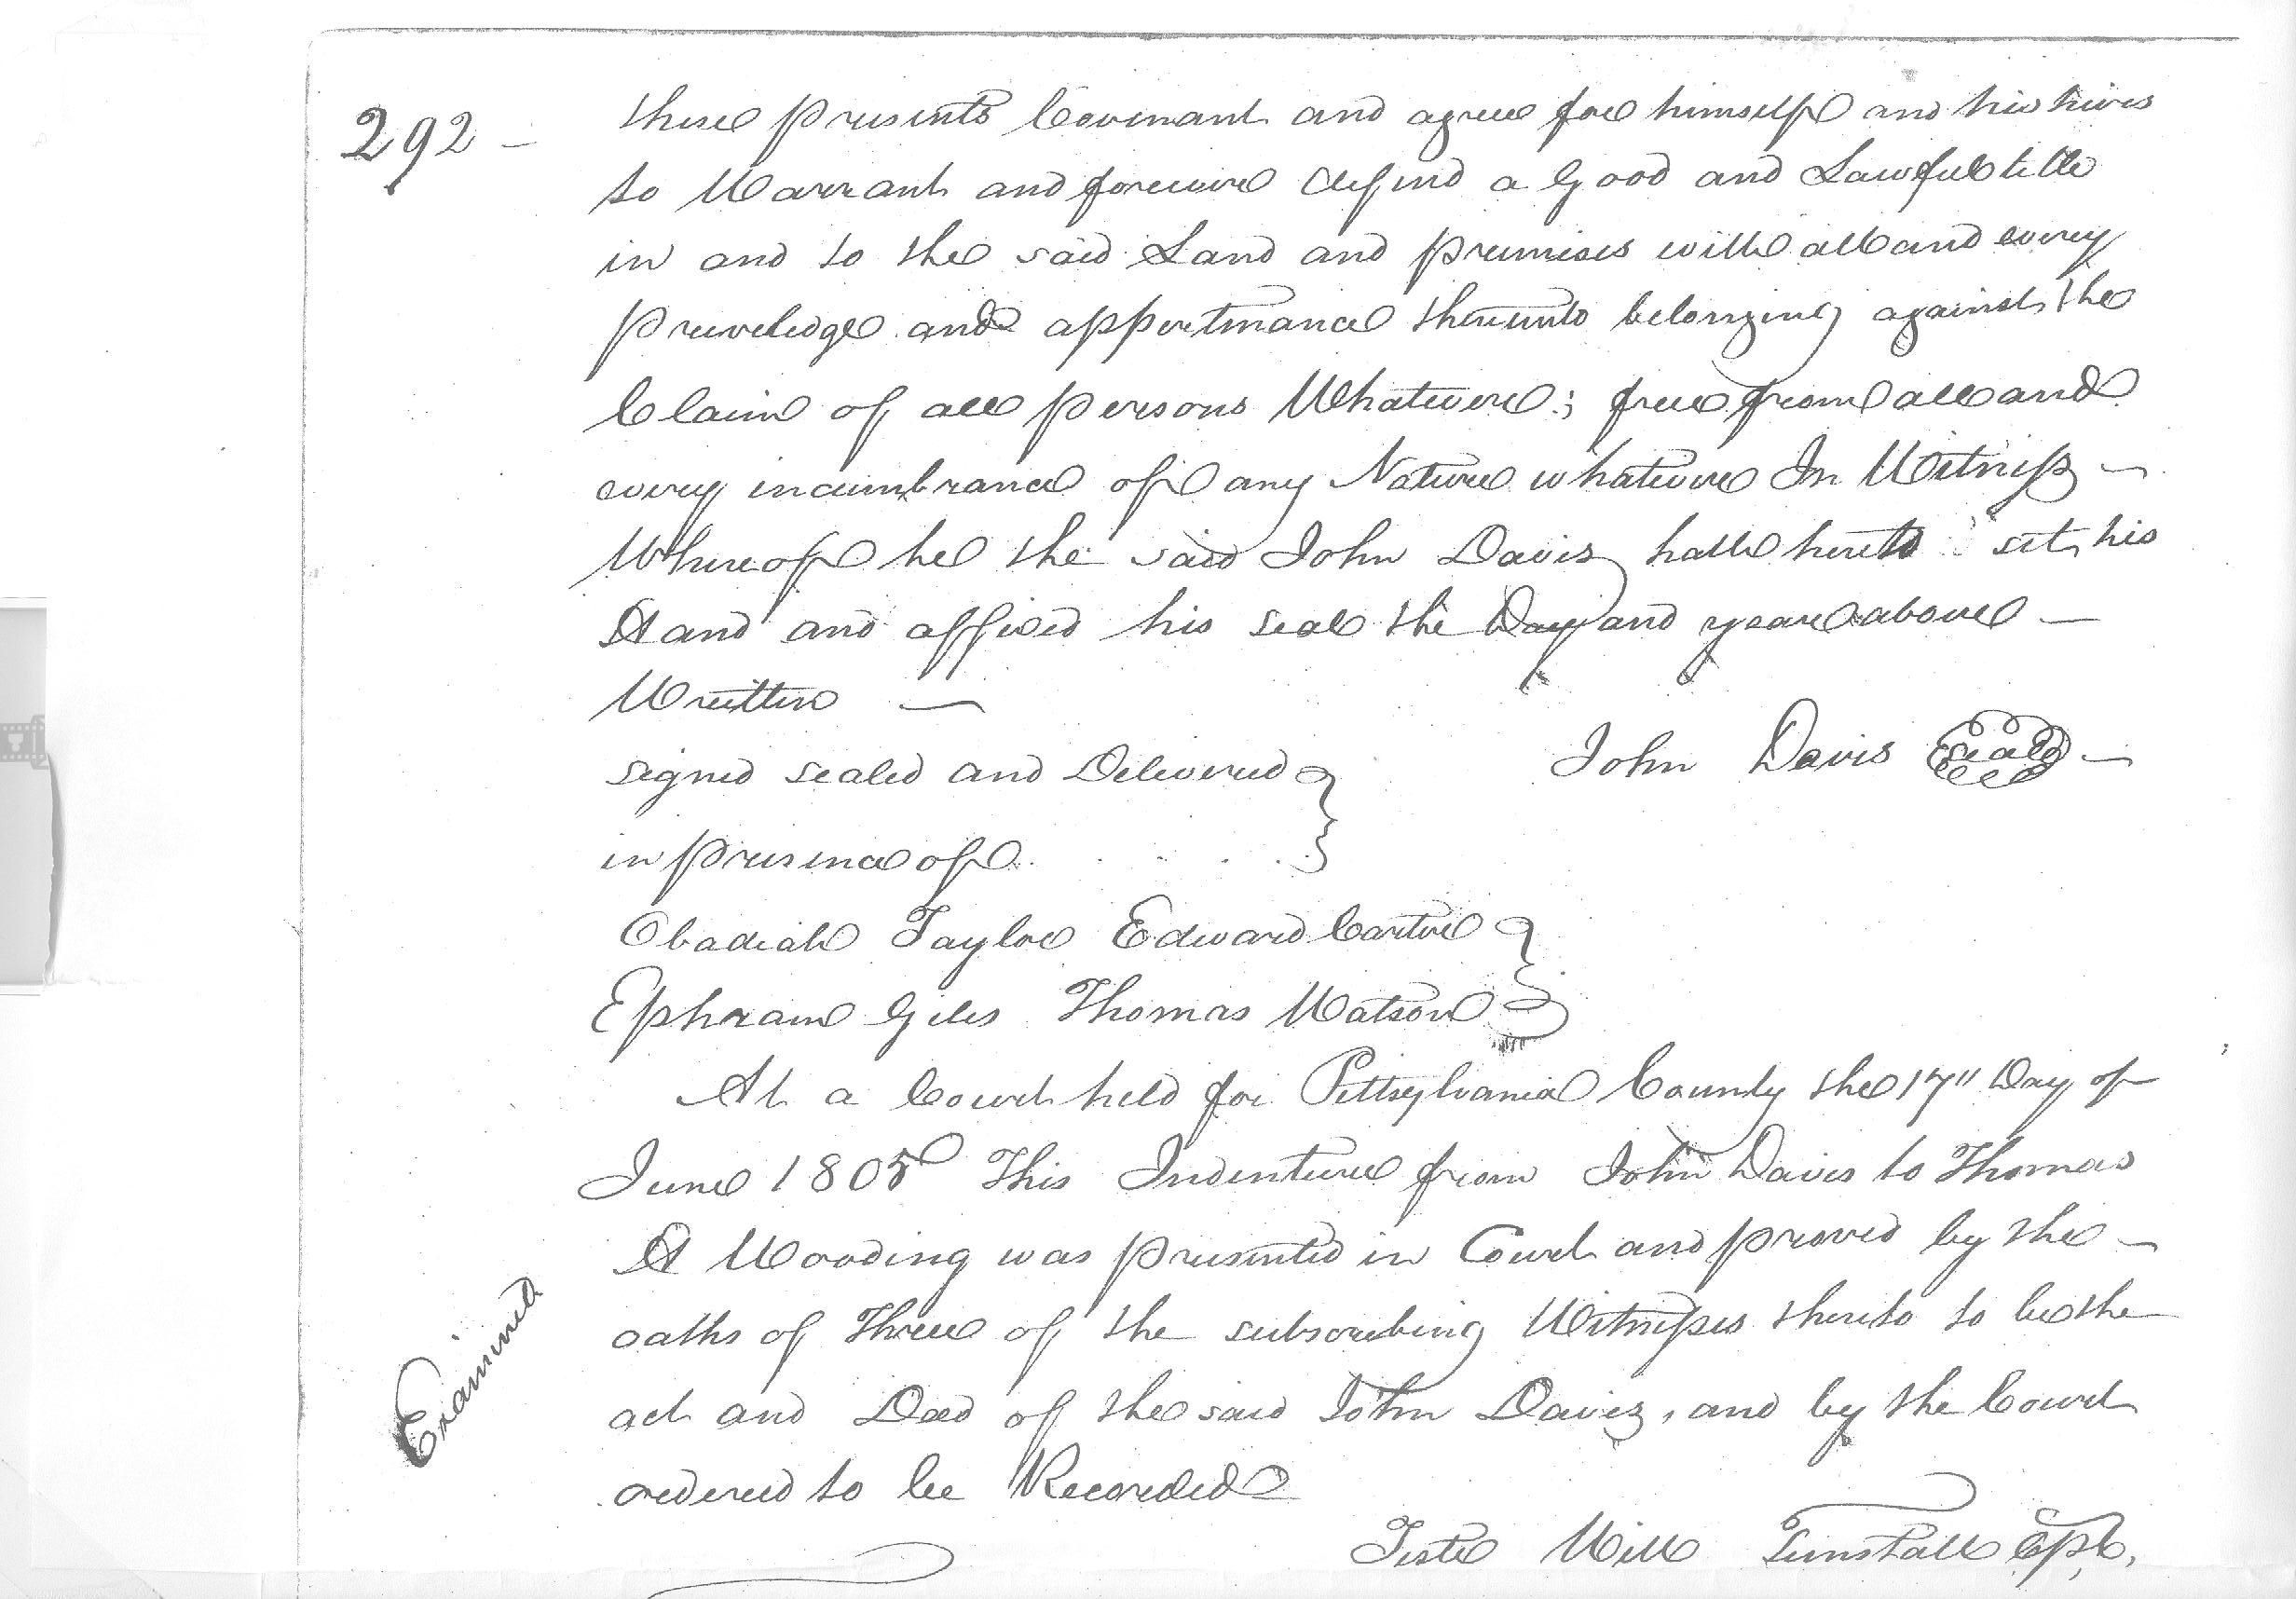 292 -
these presents Covenant and agree for himself and his heirs
to Warrant and forever defend a Good and Lawfull title
in and to the said Land and premises with all and every
Preveledge and appertinance thereunto belonging against the
Claim of all persons Whatever; free from all and
every incumbrance of any Nature whatever In Witness -
Whereof he the said John Davis hath hereto set his
Hand and affixed his seal the Day and year above -
Written -
signed sealed and Delivered
John Davis Seald -
in presence of
Obadiah Taylor Edward Carter
Ephraim Giles Thomas Watson
At a Court held for Pittsylvania County the 17" Day of
June 1805 This Indenture from John Davis to Thomas
H Wooding was presented in Court and proved by the -
oaths of Three of the subscribing Witnesses thereto to be the
Examined
act and Deed of the said John Davis, and by the Court
ordered to be Recorded
Teste Will Tunstall CPC.